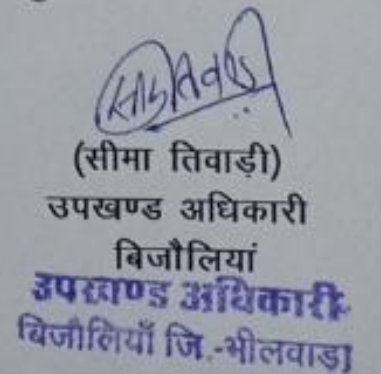 (सीमा तिवाड़ी)
उपखण्ड अधिकारी
बिजौलियां
उपखण्ड अधिकारी
बिजौलियाँ जि.-भीलवाड़ा